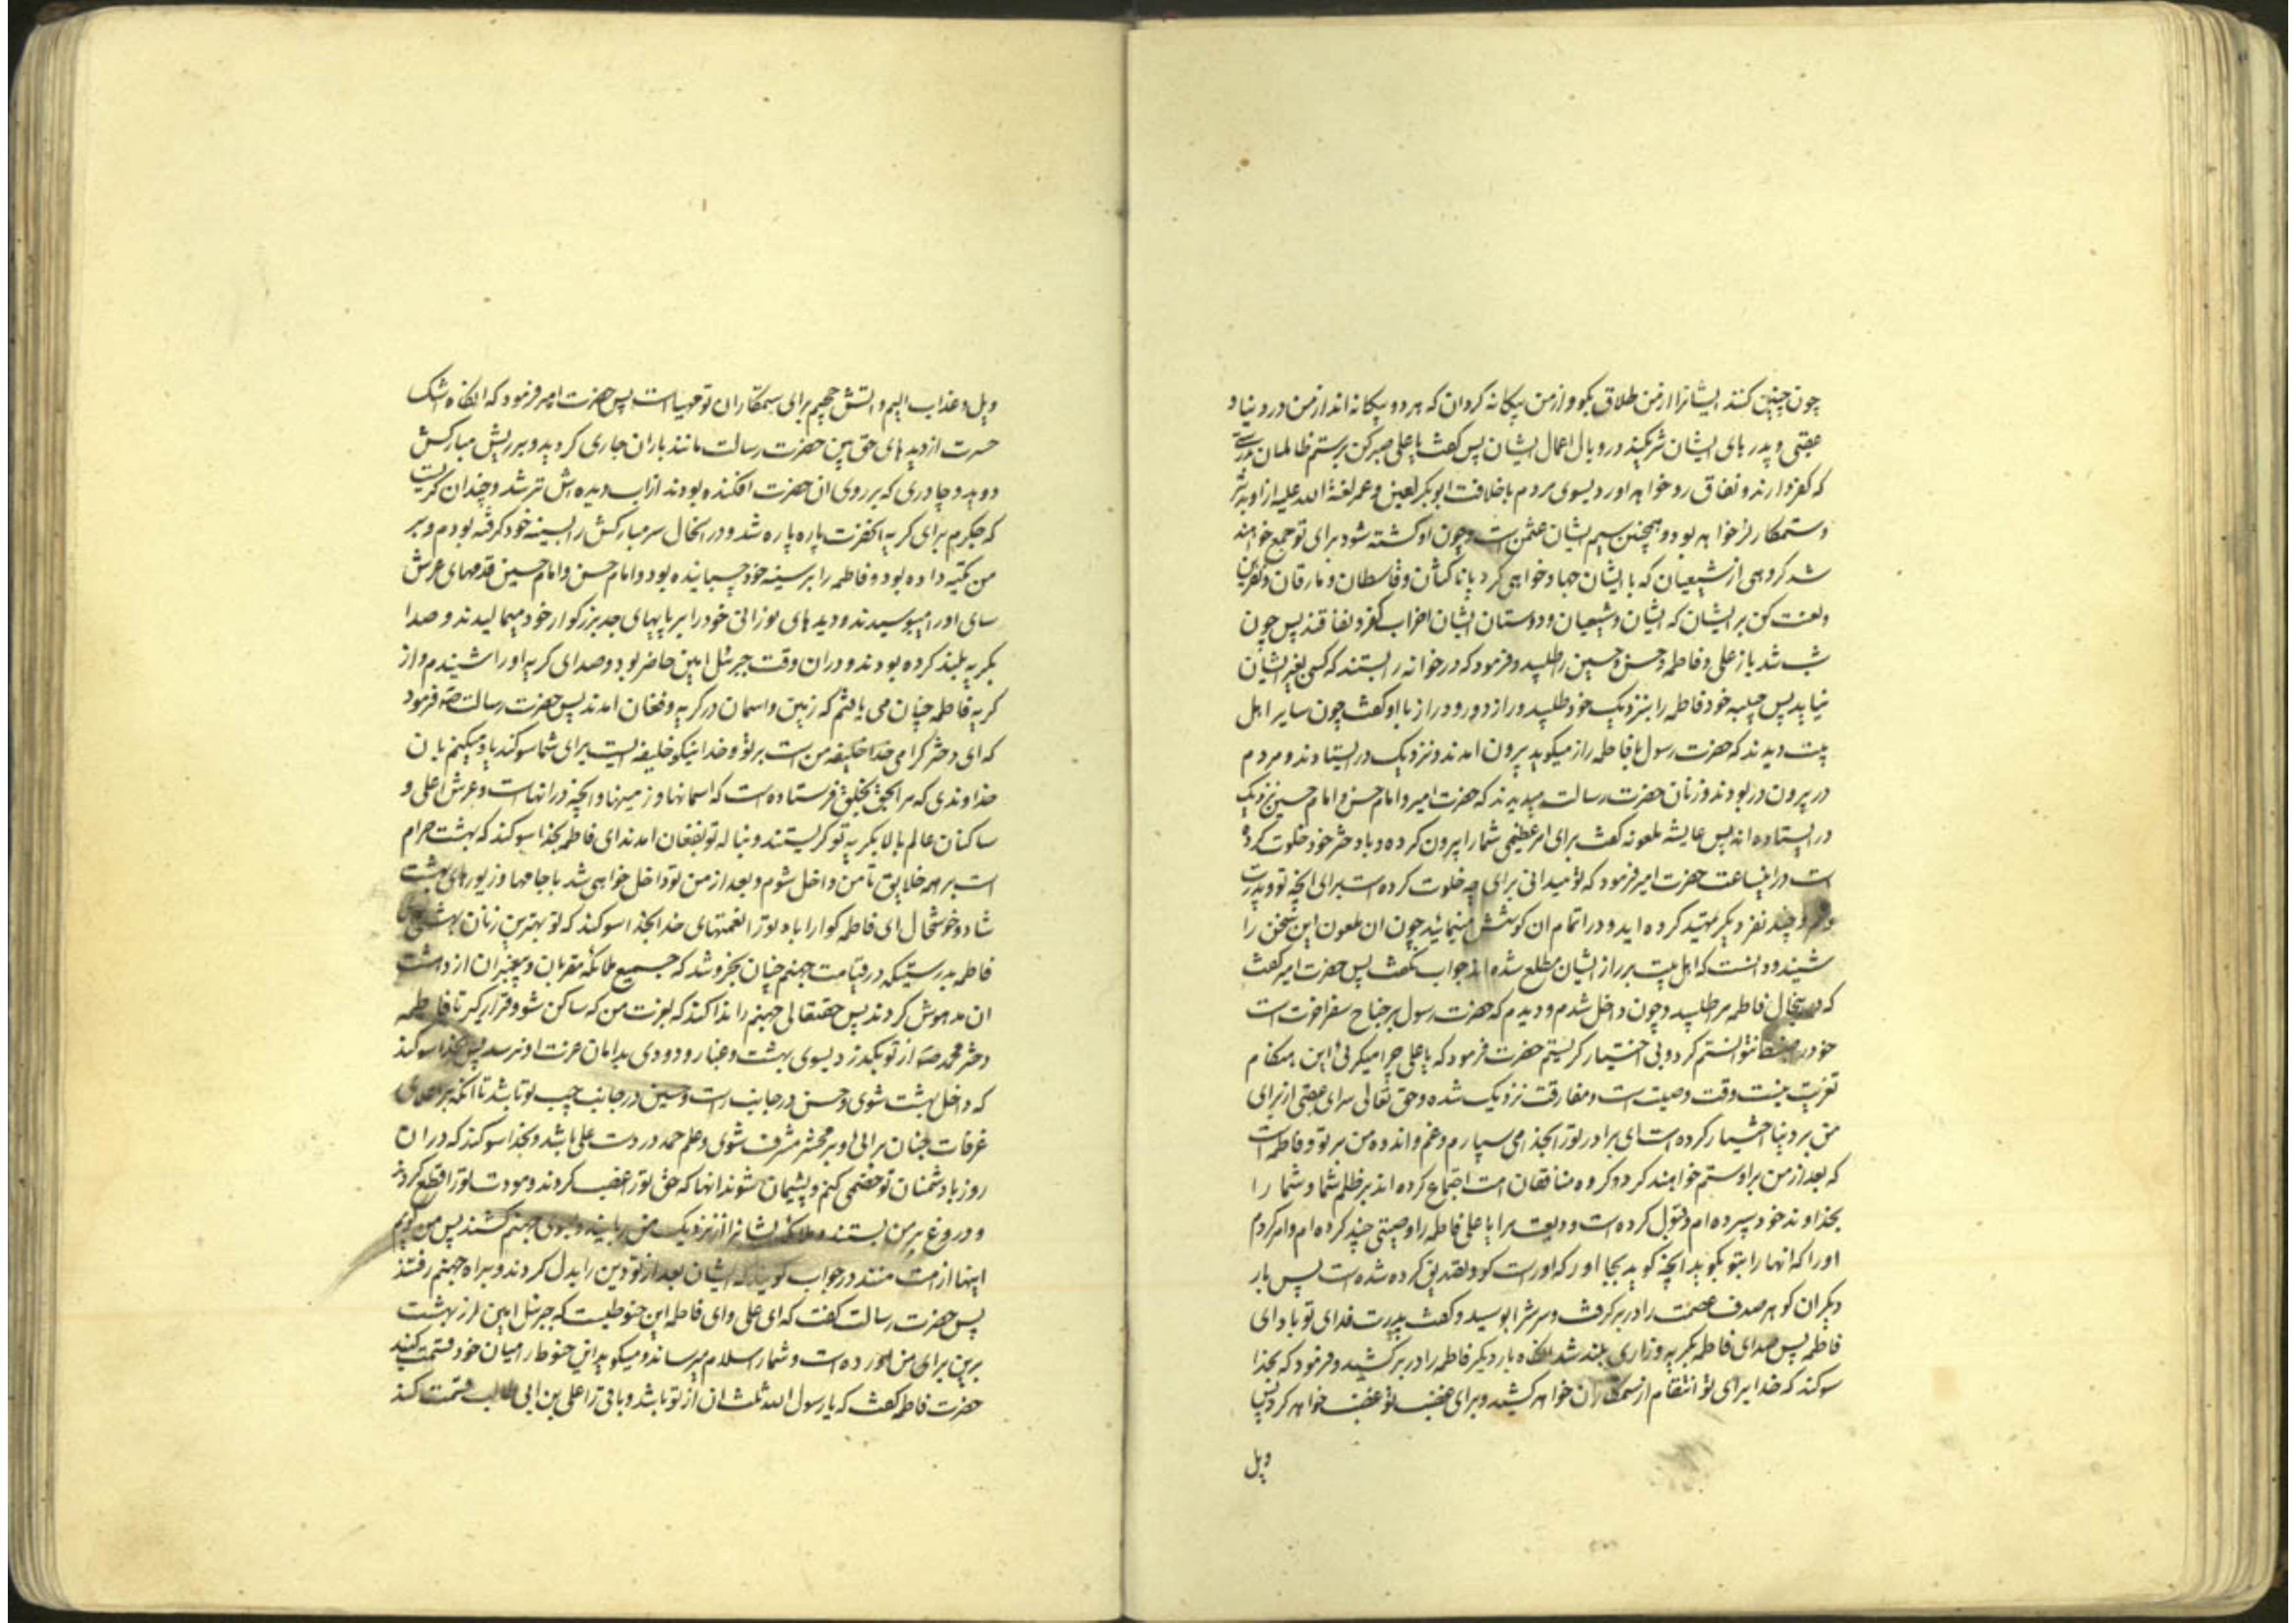 چون چنین کنند ایشانرا از من طلاق بگو و از من بیکانه کردان که هر دو بیکانه اند از من در دنیا و
عقبی و پدرهای ایشان شریکند در وبال اعمال ایشان پس کفت یا علی صبر کن بر ستم ظالمان
که کفر دارند و نفاق رو خواهد اورد بسوی مردم با خلافت ابوبکر لعین و عمر لعنة الله علیه از او بدتر
و ستمکارتر خواهد بود و همچنین سیم ایشان عثمن است و چون او کشته شود برای تو جمع خواهند
شد کروهی از شیعیان که با ایشان جهاد خواهی کرد با ناکثان و قاسطان و مارقان و نفرین
و لعنت کن بر ایشان که ایشان و شیعیان و دوستان ایشان احزاب کفر و نفاقند پس چون
شب شد باز علی و فاطمه و حسن و حسین را طلبید و فرمود که در خوانه را بستند که کسی بغیر ایشان
نیاید پس حبیبه خود فاطمه را بنزدیک خود طلبید و راز دور و دراز با او کفت چون سایر اهل
بیت دیدند که حضرت رسول با فاطمه راز میکوید بیرون امدند و نزدیک در ایستادند و مردم
در بیرون در بودند و زنان حضرت رسالت میدیدند که حضرت امیر و امام حسن و امام حسین نزدیک
در ایستاده اند پس عایشه ملعونه کفت برای امر عظیمی شما را بیرون کرده و با دختر خود خلوت کرده
است در اینساعت حضرت امیر فرمود که تو میدانی برای چه خلوت کرده است برای انچه تو و پدرت
و عمر و چند نفر دیکر تمهید کرده اید و در اتمام ان کوشش مینمائید چون ان ملعون این سخن را
شنید و دانست که اهل بیت بر راز ایشان مطلع شده اند جواب نکفت پس حضرت امیر کفت
که در اینحال فاطمه مرا طلبید و چون داخل شدم و دیدم که حضرت رسول بر جناح سفر اخرت است
خود را ضبط نتوانستم کرد و بی اختیار کریستم حضرت فرمود که یا علی چرا میکریی این هنکام
تعزیت نیست وقت وصیت است و مفارقت نزدیک شده و حق تعالی سرای عقبی از برای
من بر دنیا اختیار کرده است ای برادر تو را بخدا می سپارم و غم و اندوه من بر تو و فاطمه است
که بعد از من بر او ستم خواهند کرد و کروه منافقان امت اجتماع کرده اند بر ظلم شما و شما را
بخداوند خود سپرده ام و قبول کرده است ودیعت مرا یا علی فاطمه را وصیتی چند کرده ام و امر کردم
او را که انها را بتو بکوید انچه کوید بجا اور که او راست کو و تصدیق کرده شده است پس بار
دیکر ان کوهر صدف عصمت را در بر کرفت و سرش را بوسید و کفت پدرت فدای تو باد ای
فاطمه پس صدای فاطمه بکریه و زاری بلند شد انکاه بار دیکر فاطمه را در بر کشید و فرمود که بخدا
سوکند که خدا برای تو انتقام از ستمکاران خواهد کشید و برای غضب تو غضب خواهد کرد پس
ویل
ویل و عذاب الیم و اتش جحیم برای ستمکاران تو مهیاست پس حضرت امیر فرمود که انکاه اشک
حسرت از دیدهای حق بین حضرت رسالت مانند باران جاری کردید و بر ریش مبارکش
دوید و چادری که بر روی ان حضرت افکنده بودند از اب دیده اش تر شد و چندان کریست
که جکرم برای کریه انحضرت پاره پاره شد و در انحال سر مبارکش را بسینه خود کرفته بودم و بر
من تکیه داده بود و فاطمه را بر سینه خود چسبانیده بود و امام حسن و امام حسین قدمهای عرش
سای او را میبوسیدند و دیدهای نورانی خود را بر پایهای جد بزرکوار خود میمالیدند و صدا
بکریه بلند کرده بودند و در ان وقت جبرئل امین حاضر بود و صدای کریه او را شنیدم و از
کریه فاطمه چنان می یافتم که زمین و اسمان در کریه و فغان امدند پس حضرت رسالت ص فرمود
که ای دختر کرامی خدا خلیفه من است بر تو و خدا نیکو خلیفه ایست برای شما سوکند یاد میکنم بان
خداوندی که مرا بحق بخلق فرستاده است که اسمانها و زمینها و انچه در انهاست و عرش اعلی و
ساکنان عالم بالا بکریه تو کریستند و بناله تو بفغان امدند ای فاطمه بخدا سوکند که بهشت حرام
است بر همه خلایق تا من داخل شوم و بعد از من تو داخل خواهی شد با جامها و زیورهای بهشت
شاد و خوشحال ای فاطمه کوارا باد تو را نعمتهای خدا بخدا سوکند که تو بهترین زنان بهشتی ای
فاطمه بدرستیکه در قیامت جهنم چنان بخروشد که جمیع ملائکه مقربان و پیغمبران از دهشت
ان مدهوش کردند پس حقتعالی جهنم را ندا کند که بعزت من که ساکن شو و قرار کیر تا فاطمه
دختر محمد ص از تو بکذرد بسوی بهشت و غبار و دودی بدامان عزت او نرسد پس بخدا سوکند
که داخل بهشت شوی و حسن در جانب راست و حسین در جانب چپ تو باشد تا انکه بر اعلای
غرفات جنان برایی و بر محشر مشرف شوی و علم حمد در دست علی باشد و بخدا سوکند که در ان
روز با دشمنان تو خصمی کنم و پشیمان شوند انها که حق تو را غصب کردند و مودت تو را قطع کردند
و دروغ بر من بستند و ملائکه ایشانرا از نزدیک من ربایند و بسوی جهنم کشند پس من کویم
اینها از امت منند در جواب کویند که ایشان بعد از تو دین را بدل کردند و براه جهنم رفتند
پس حضرت رسالت کفت که ای علی و ای فاطمه این حنوطیست که جبرئل امین از بهشت
برین برای من اورده است و شما را سلام میرساند و میکوید این حنوط را میان خود قسمت کنید
حضرت فاطمه کفت که یا رسول الله ثلث ان از تو باشد و باقی را علی بن ابی طالب قسمت کند